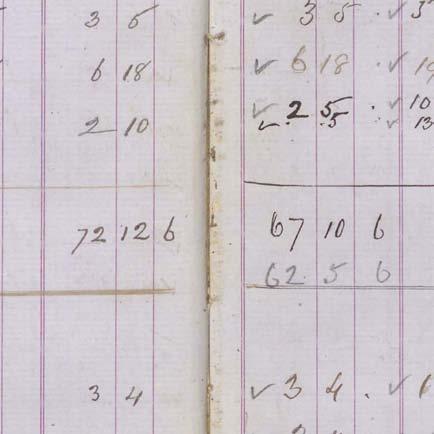 3 5
6 18
2 10
72 12 6
3 4
✓ 3 5 . ✓
✓ 6 18 . ✓
✓ 2 5 . ✓ 10
✓ . 5 ✓ 13
67 10 6
62 5 6
✓ 3 4 . ✓